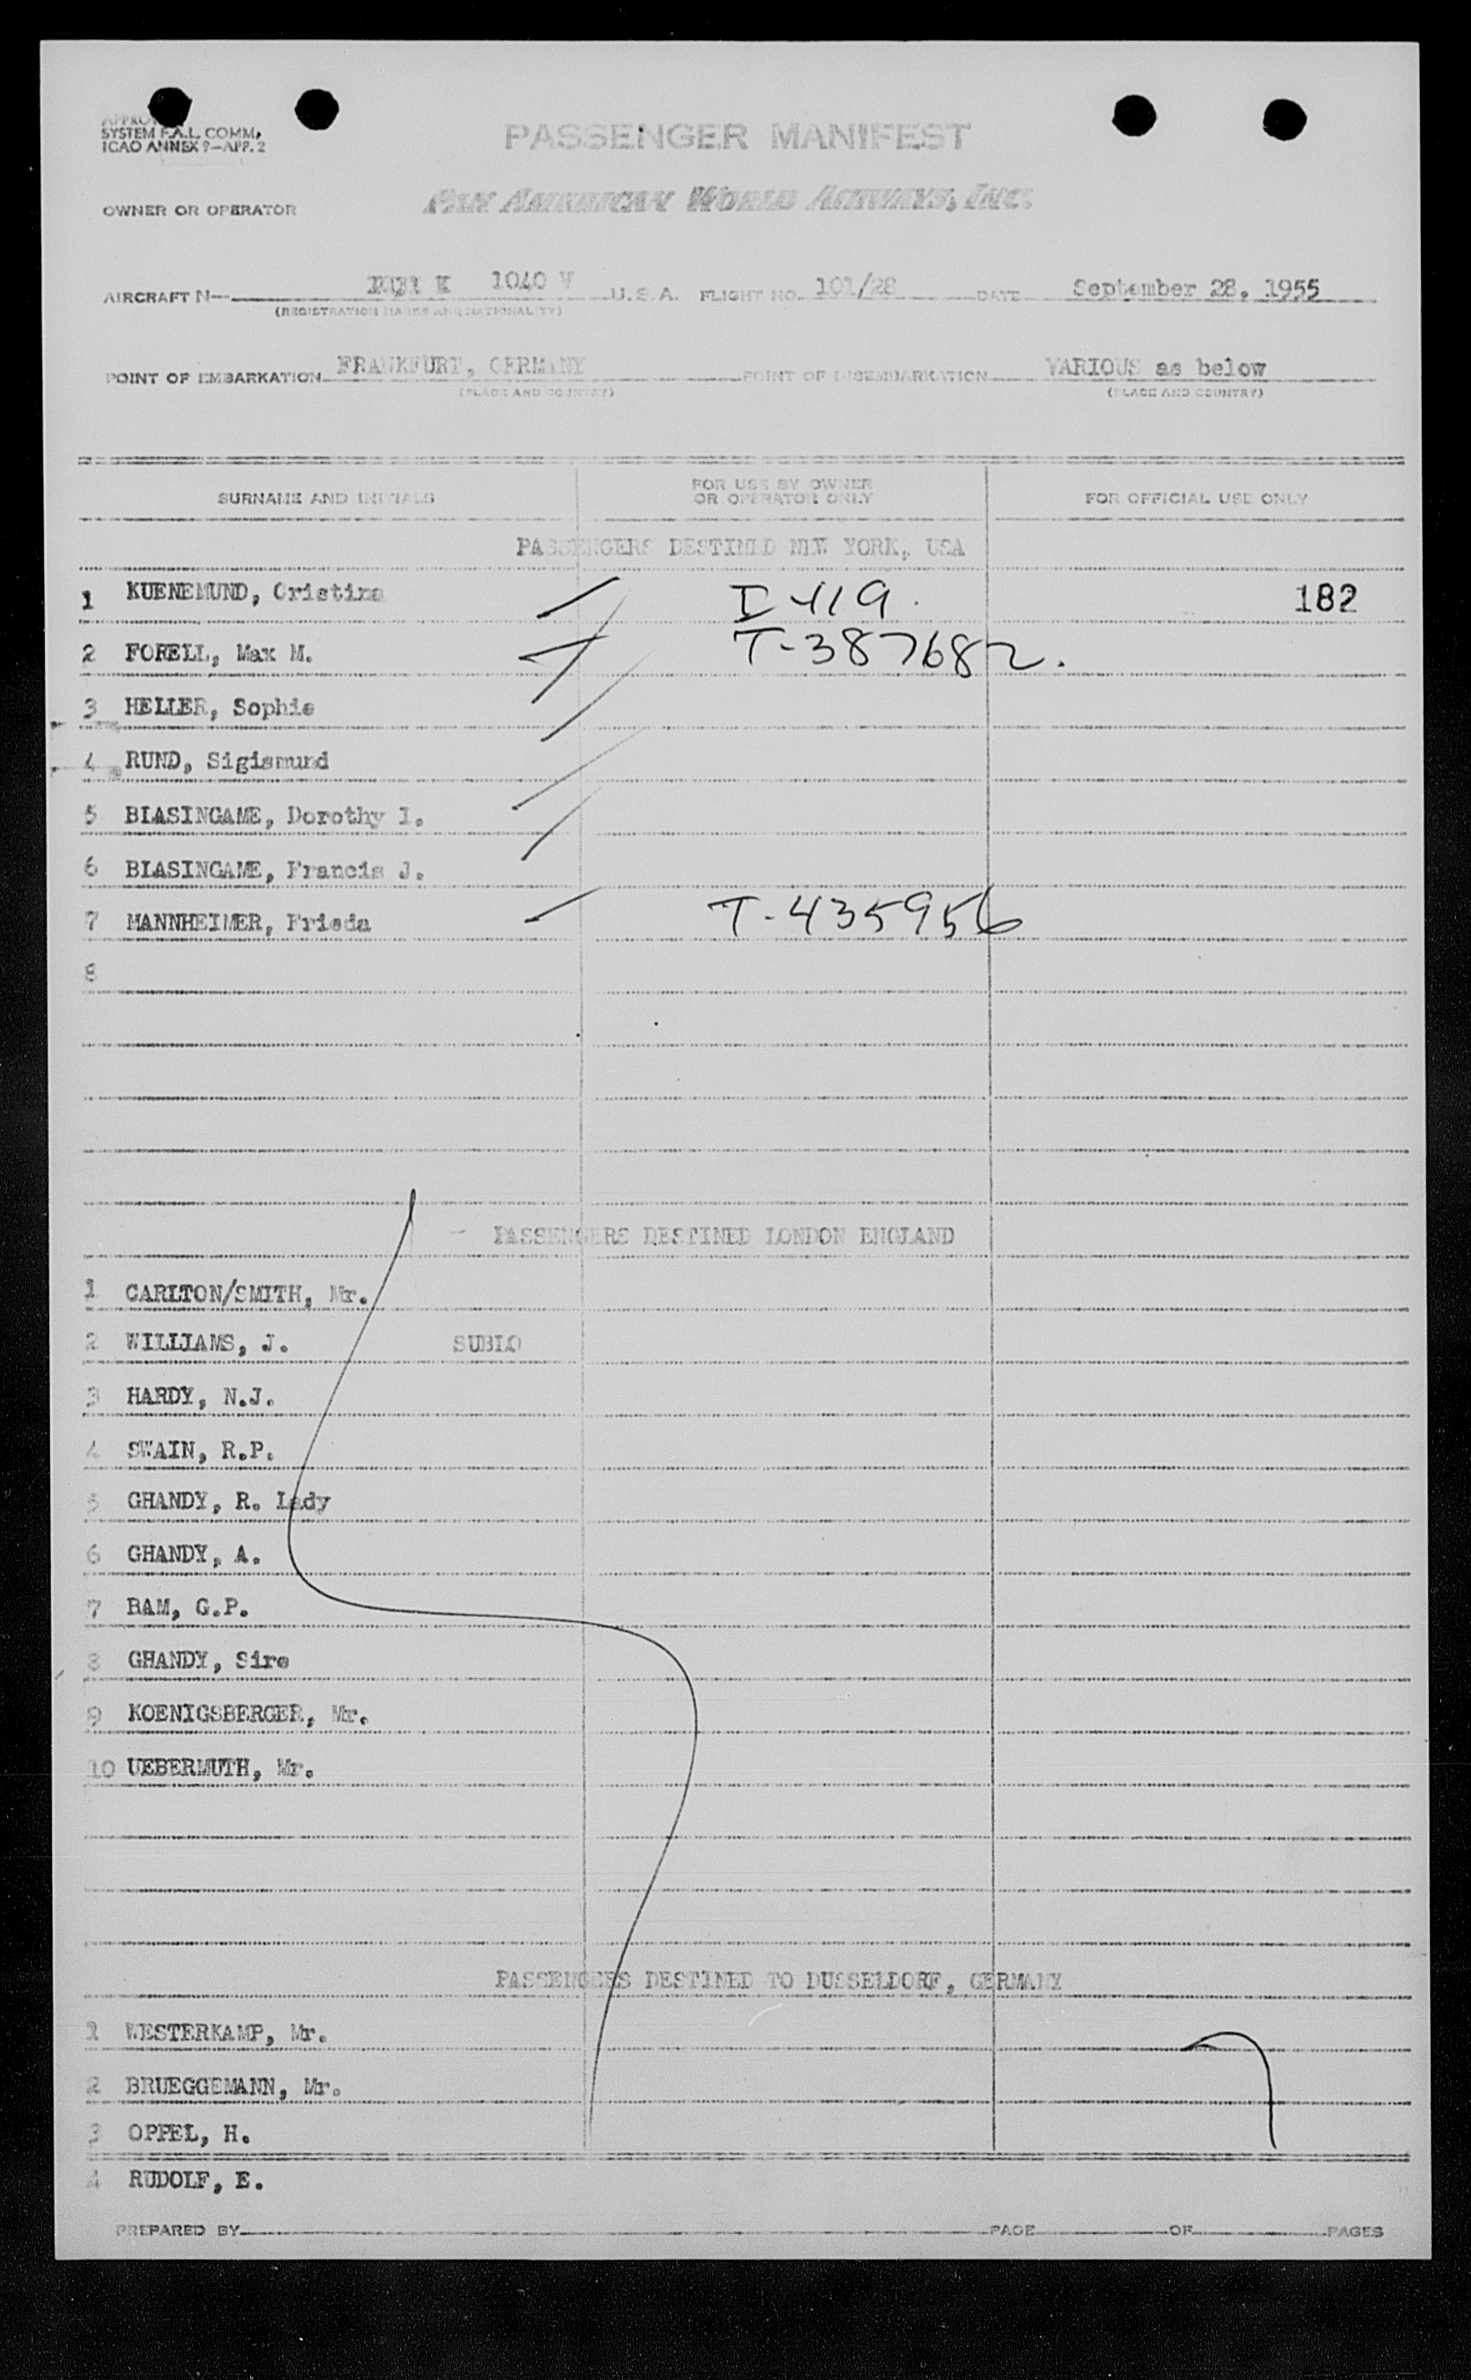 SYSTEM F.A.L. COMM.
ICAO ANNEX 9-APP. 2
PASSENGER MANIFEST
OWNER OR OPERATOR PAN AMERICAN WORLD AIRWAYS, INC.
AIRCRAFT N- 1040 V U.S.A. FLIGHT NO. 101/28 DATE September 28, 1955
(REGISTRATION MARKS AND NATIONALITY)
POINT OF EMBARKATION FRANKFURT, GERMANY POINT OF DISEMBARKATION VARIOUS as below
(PLACE AND COUNTRY) (PLACE AND COUNTRY)
SURNAME AND INITIALS FOR USE BY OWNER OR OPERATOR ONLY FOR OFFICIAL USE ONLY
PASSENGERS DESTINED NEW YORK, USA
1 KUENEMUND, Cristina I-419. 182
2 FORELL, Max M. T-387682.
3 HELLER, Sophie
4 RUND, Sigismund
5 BLASINGAME, Dorothy I.
6 BLASINGAME, Francis J.
7 MANNHEIMER, Frieda T-435956
8
- PASSENGERS DESTINED LONDON ENGLAND
1 CARLTON/SMITH, Mr.
2 WILLIAMS, J. SUBLO
3 HARDY, N.J.
4 SWAIN, R.P.
5 GHANDY, R. Lady
6 GHANDY, A.
7 RAM, G.P.
8 GHANDY, Sire
9 KOENIGSBERGER, Mr.
10 UEBERMUTH, Mr.
PASSENGERS DESTINED TO DUSSELDORF, GERMANY
1 WESTERKAMP, Mr.
2 BRUEGGEMANN, Mr.
3 OPPEL, H.
4 RUDOLF, E.
PREPARED BY PAGE OF PAGES